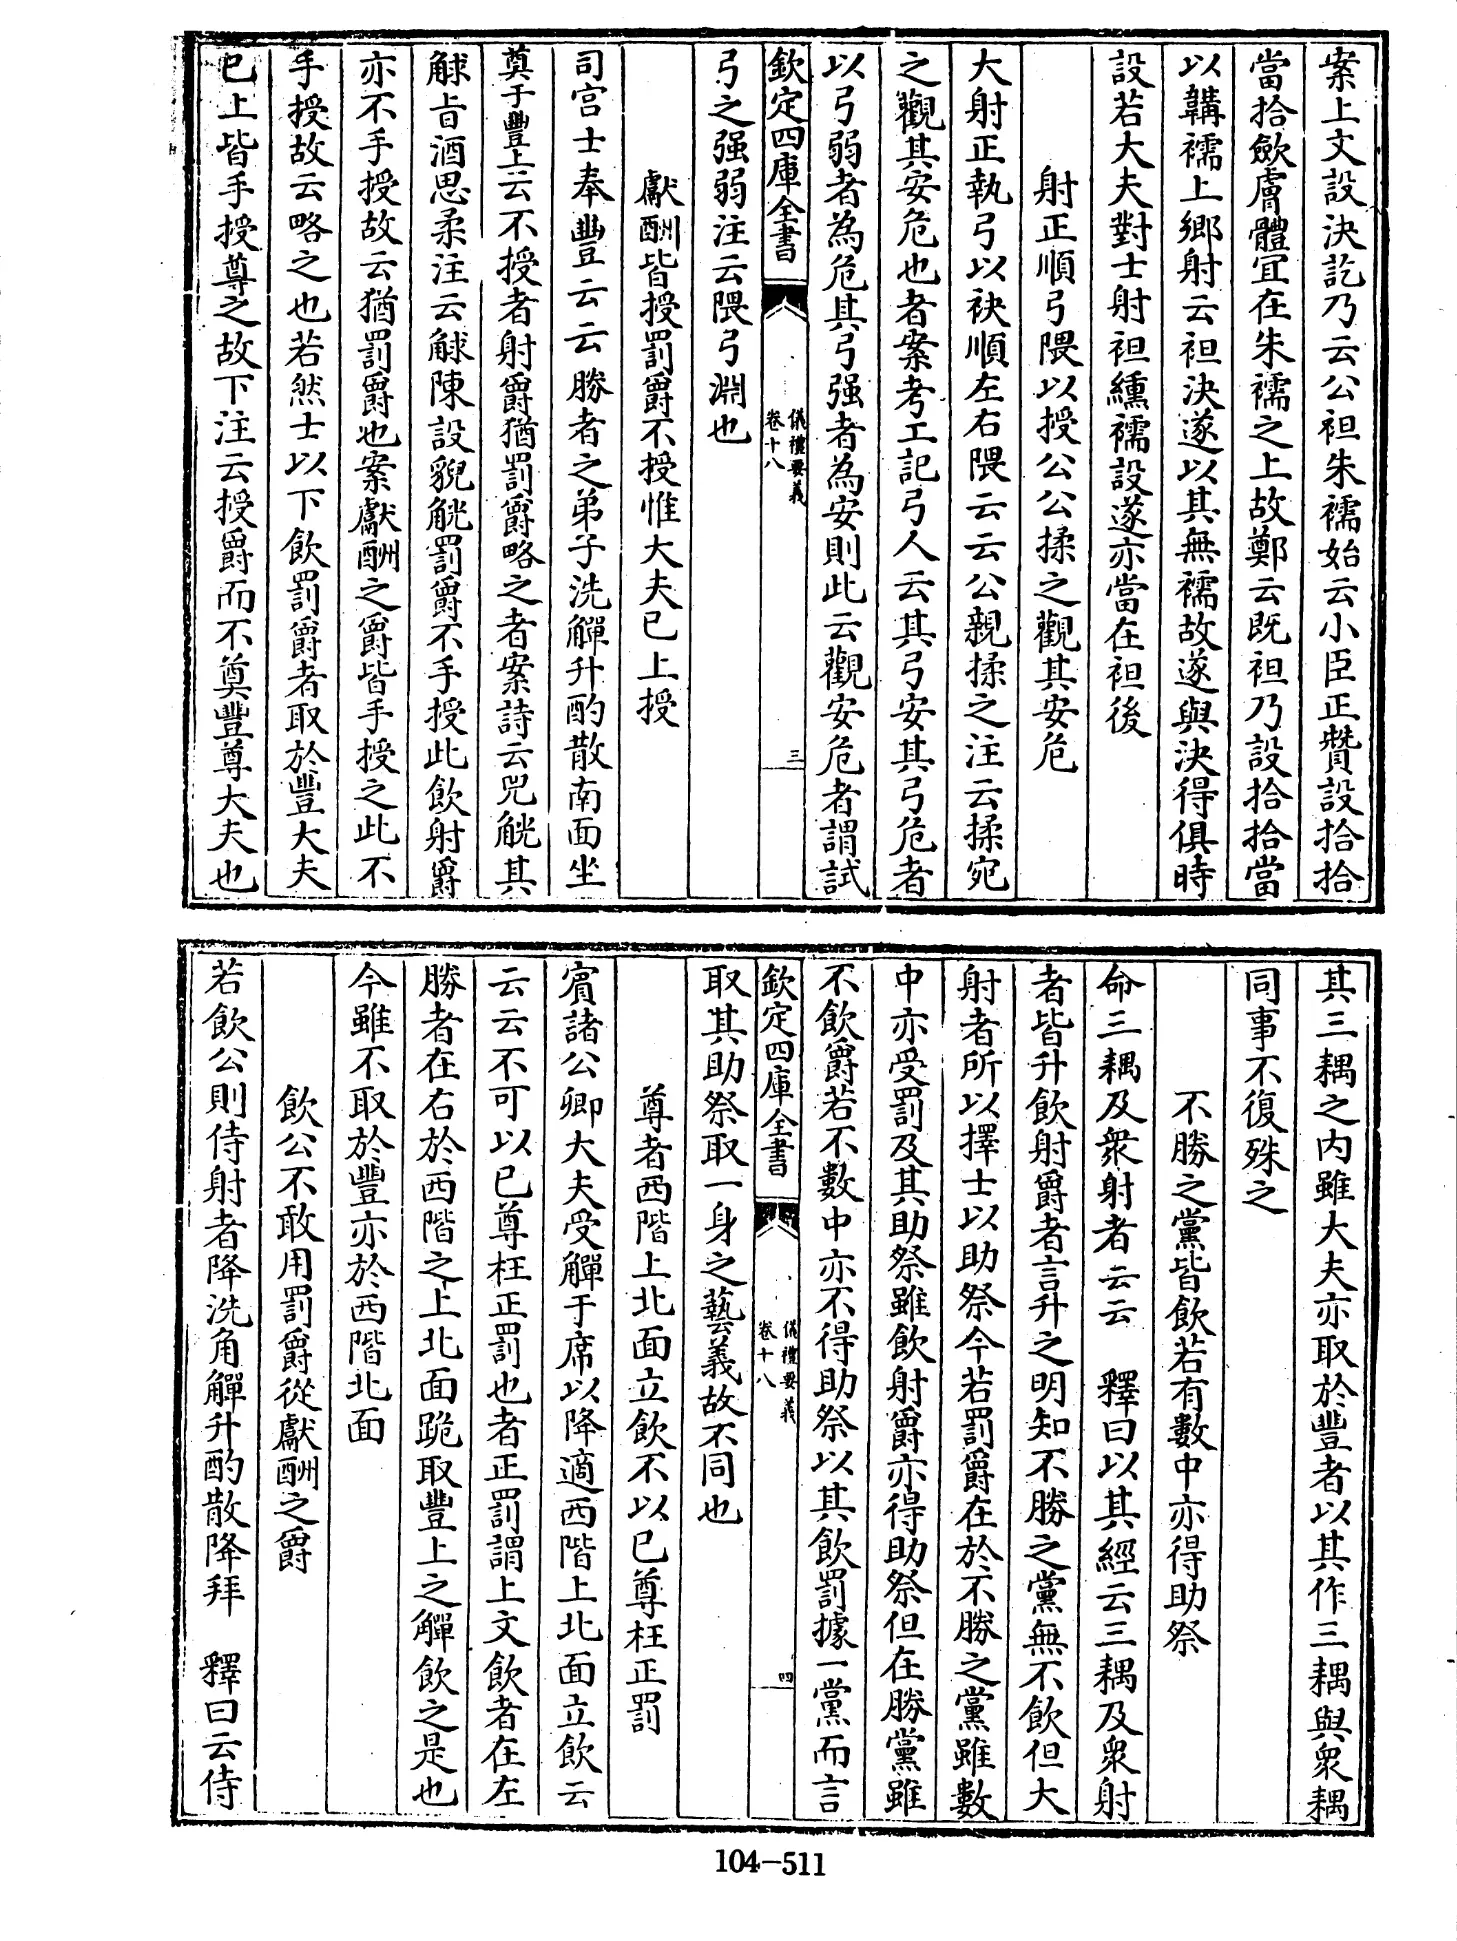 案上文設決訖乃云公袒朱襦始云小臣正贊設拾拾
當拾斂膚體宜在朱襦之上故鄭云既袒乃設拾拾當
以韝襦上鄉射云袒決遂以其無襦故遂與決得俱時
設若大夫對士射袒纁襦設遂亦當在袒後
射正順弓隈以授公公揉之觀其安危
大射正執弓以袂順左右隈云云公親揉之注云揉宛
之觀其安危也者案考工記弓人云其弓安其弓危者
以弓弱者為危其弓强者為安則此云觀安危者謂試
欽定四庫全書
儀禮要義
卷十八
三
弓之强弱注云隈弓淵也
獻酬皆授罰爵不授惟大夫已上授
司宫士奉豐云云勝者之弟子洗觶升酌散南面坐
奠于豐上云不授者射爵猶罰爵略之者案詩云兕觥其
觩旨酒思柔注云觩陳設貌觥罰爵不手授此飲射爵
亦不手授故云猶罰爵也案獻酬之爵皆手授之此不
手授故云略之也若然士以下飲罰爵者取於豐大夫
已上皆手授尊之故下注云授爵而不奠豐尊大夫也
其三耦之内雖大夫亦取於豐者以其作三耦與衆耦
同事不復殊之
不勝之黨皆飲若有數中亦得助祭
命三耦及衆射者云云 釋曰以其經云三耦及衆射
者皆升飲射爵者言升之明知不勝之黨無不飲但大
射者所以擇士以助祭今若罰爵在於不勝之黨雖數
中亦受罰及其助祭雖飲射爵亦得助祭但在勝黨雖
不飲爵若不數中亦不得助祭以其飲罰據一黨而言
欽定四庫全書
儀禮要義
卷十八
四
取其助祭取一身之藝義故不同也
尊者西階上北面立飲不以已尊枉正罰
賓諸公卿大夫受觶于席以降適西階上北面立飲云
云云不可以已尊枉正罰也者正罰謂上文飲者在左
勝者在右於西階之上北面跪取豐上之觶飲之是也
今雖不取於豐亦於西階北面
飲公不敢用罰爵從獻酬之爵
若飲公則侍射者降洗角觶升酌散降拜 釋曰云侍
104-511